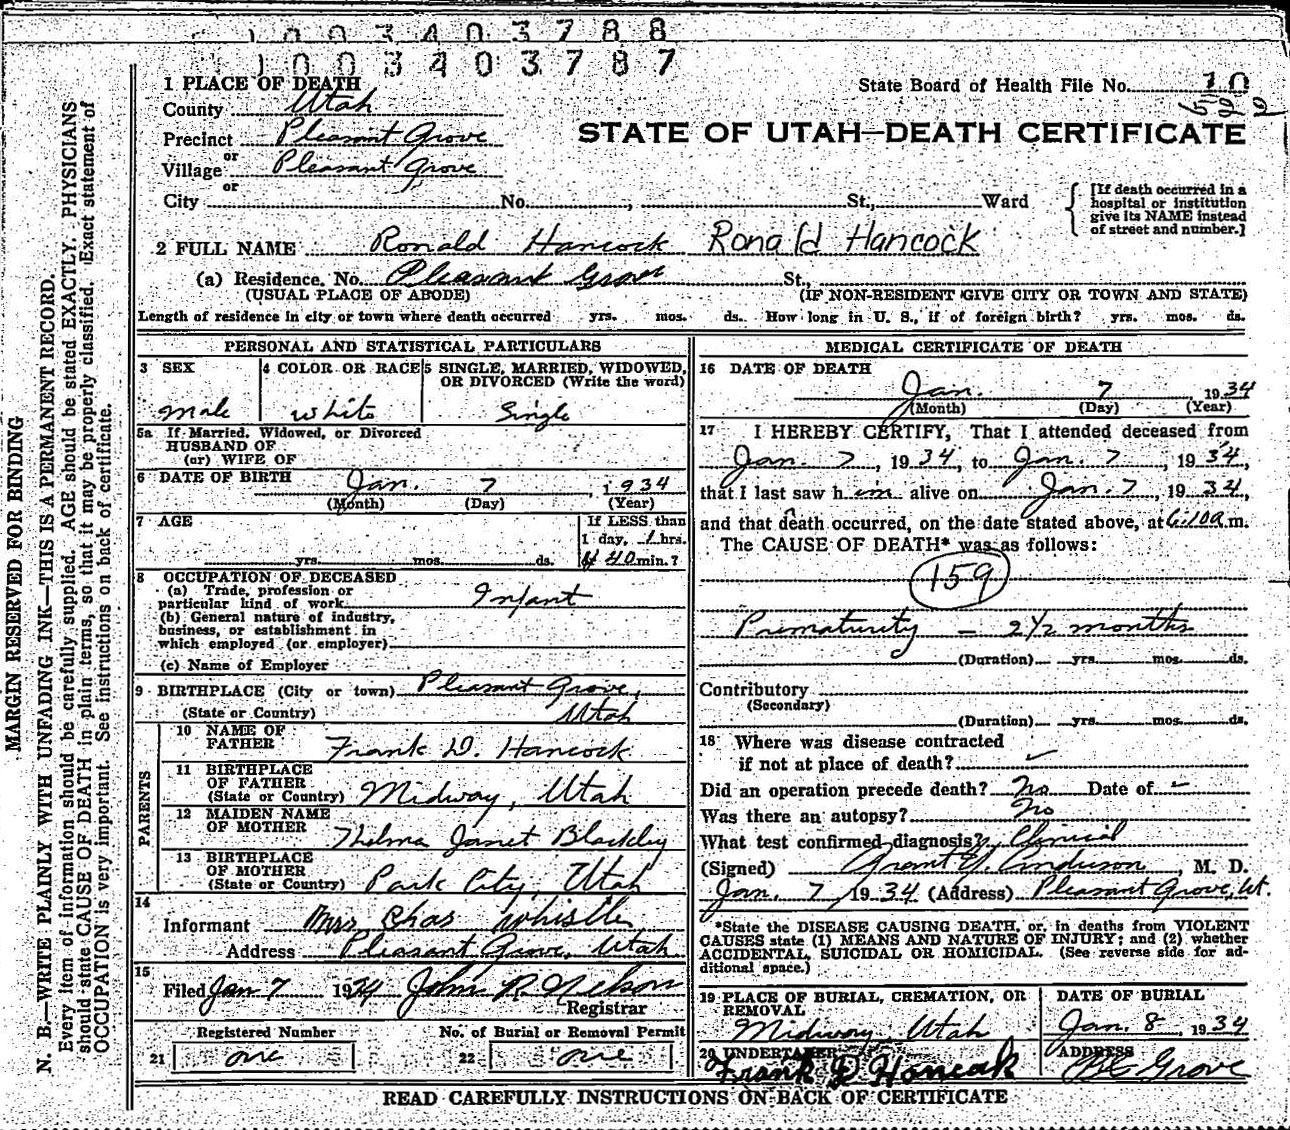 1003403788
1003403787
1 PLACE OF DEATH
County Utah
Precinct Pleasant Grove
or
Village Pleasant Grove
or
City No. , St., Ward
State Board of Health File No. 10
STATE OF UTAH—DEATH CERTIFICATE
[If death occurred in a hospital or institution give its NAME instead of street and number.]
2 FULL NAME Ronald Hancock Ronald Hancock
(a) Residence. No. Pleasant Grove St.,
(USUAL PLACE OF ABODE) (IF NON-RESIDENT GIVE CITY OR TOWN AND STATE)
Length of residence in city or town where death occurred yrs. mos. ds. How long in U. S., if of foreign birth? yrs. mos. ds.
PERSONAL AND STATISTICAL PARTICULARS
3 SEX
Male
4 COLOR OR RACE
White
5 SINGLE, MARRIED, WIDOWED, OR DIVORCED (Write the word)
Single
5a If Married, Widowed, or Divorced
HUSBAND OF
(or) WIFE OF
6 DATE OF BIRTH Jan. 7, 1934
(Month) (Day) (Year)
7 AGE
yrs. mos. ds.
If LESS than
1 day, 1 hrs.
40 min.?
8 OCCUPATION OF DECEASED
(a) Trade, profession or
particular kind of work Infant
(b) General nature of industry,
business, or establishment in
which employed (or employer)
(c) Name of Employer
9 BIRTHPLACE (City or town) Pleasant Grove,
(State or Country) Utah
PARENTS
10 NAME OF
FATHER Frank D. Hancock
11 BIRTHPLACE
OF FATHER
(State or Country) Midway, Utah
12 MAIDEN NAME
OF MOTHER Thelma Janet Blackley
13 BIRTHPLACE
OF MOTHER
(State or Country) Park City, Utah
14
Informant Mrs Chas Whistle
Address Pleasant Grove, Utah
15
Filed Jan 7 1934 John R. Nelson
Registrar
Registered Number No. of Burial or Removal Permit
21 one 22 one
MEDICAL CERTIFICATE OF DEATH
16 DATE OF DEATH
Jan. 7 1934
(Month) (Day) (Year)
17 I HEREBY CERTIFY, That I attended deceased from
Jan. 7, 1934, to Jan. 7, 1934,
that I last saw him alive on Jan. 7, 1934,
and that death occurred, on the date stated above, at 6:10a m.
The CAUSE OF DEATH* was as follows:
159
Prematurity — 2½ months
(Duration) yrs. mos. ds.
Contributory
(Secondary)
(Duration) yrs. mos. ds.
18 Where was disease contracted
if not at place of death?
Did an operation precede death? No Date of
Was there an autopsy? No
What test confirmed diagnosis? Clinical
(Signed) Grant Y. Anderson, M. D.
Jan. 7, 1934 (Address) Pleasant Grove, Ut.
*State the DISEASE CAUSING DEATH, or, in deaths from VIOLENT
CAUSES state (1) MEANS AND NATURE OF INJURY; and (2) whether
ACCIDENTAL, SUICIDAL OR HOMICIDAL. (See reverse side for ad-
ditional space.)
19 PLACE OF BURIAL, CREMATION, OR
REMOVAL
Midway, Utah
DATE OF BURIAL
Jan. 8, 1934
20 UNDERTAKER
Frank D Honcak
ADDRESS
Pl Grove
READ CAREFULLY INSTRUCTIONS ON BACK OF CERTIFICATE
MARGIN RESERVED FOR BINDING
N. B.—WRITE PLAINLY WITH UNFADING INK—THIS IS A PERMANENT RECORD.
Every item of information should be carefully supplied. AGE should be stated EXACTLY. PHYSICIANS
should state CAUSE OF DEATH in plain terms, so that it may be properly classified. Exact statement of
OCCUPATION is very important. See instructions on back of certificate.